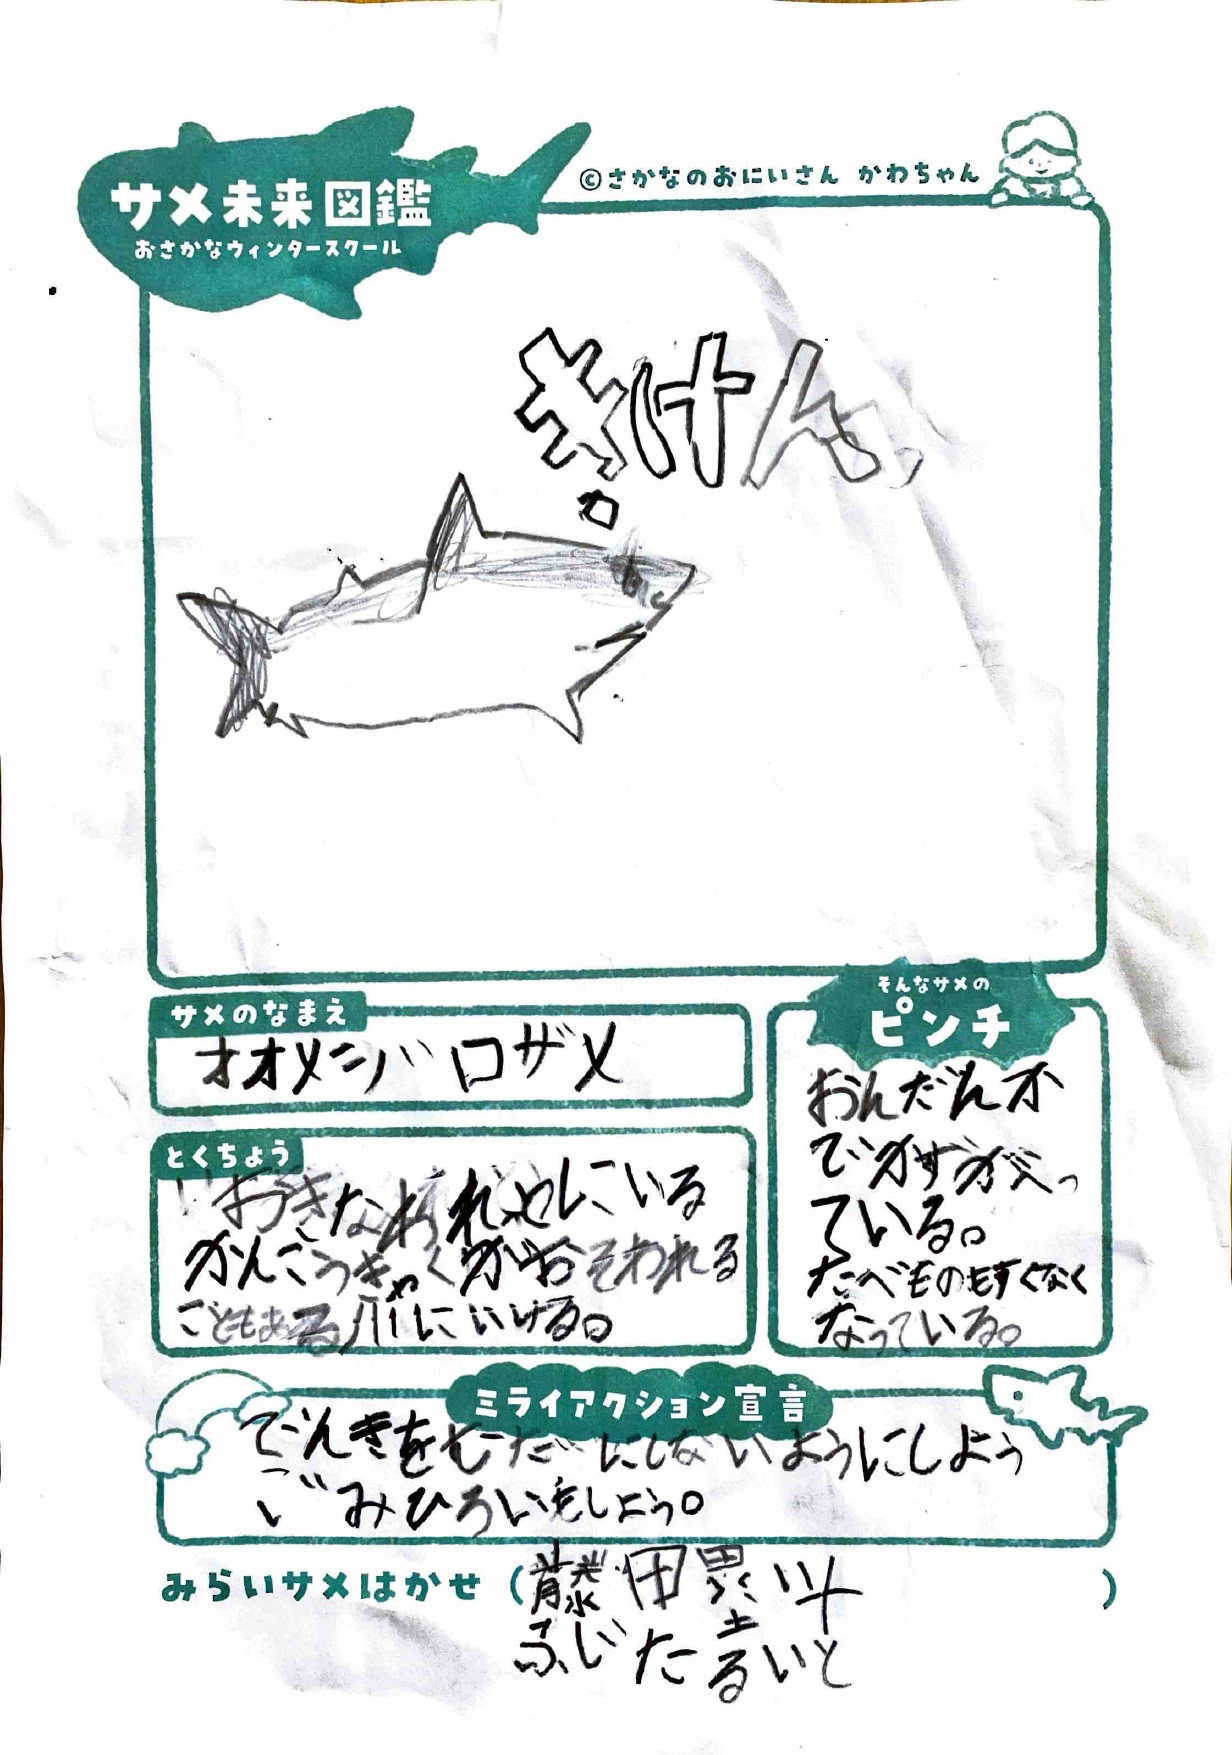 サメ未来図鑑
おさかなウィンタースクール
©さかなのおにいさん かわちゃん
きけん
サメのなまえ
オオメジロザメ
とくちょう
おうきな
にいる
かんこうきゃくがおそわれる
こともある川にいける。
そんなサメの
ピンチ
おんだんカ
でかずがへっ
ている。
たべものもすくなく
なっている。
ミライアクション宣言
でんきをむだにしないようにしよう
ごみひろいをしよう。
みらいサメはかせ（藤田塁斗）
ふじたるいと